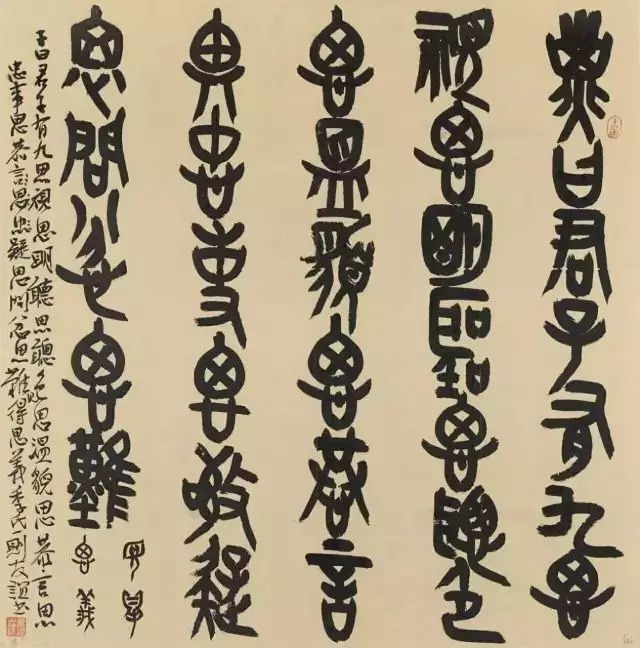 曰君子有九思
視思明聽思聰色
思溫貌思恭言
思忠事思敬疑
思問忿思難
見得
思義
子曰君子有九思視思明聽思聰色思溫貌思恭言思
忠事思恭言思忠疑思問忿思難得思義